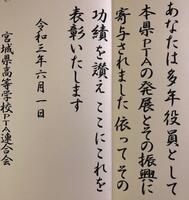 あなたは多年役員として
本県PTAの発展とその振興に
寄与されました 依ってその
功績を讃え ここにこれを
表彰いたします
令和三年六月一日
宮城県高等学校PTA連合会